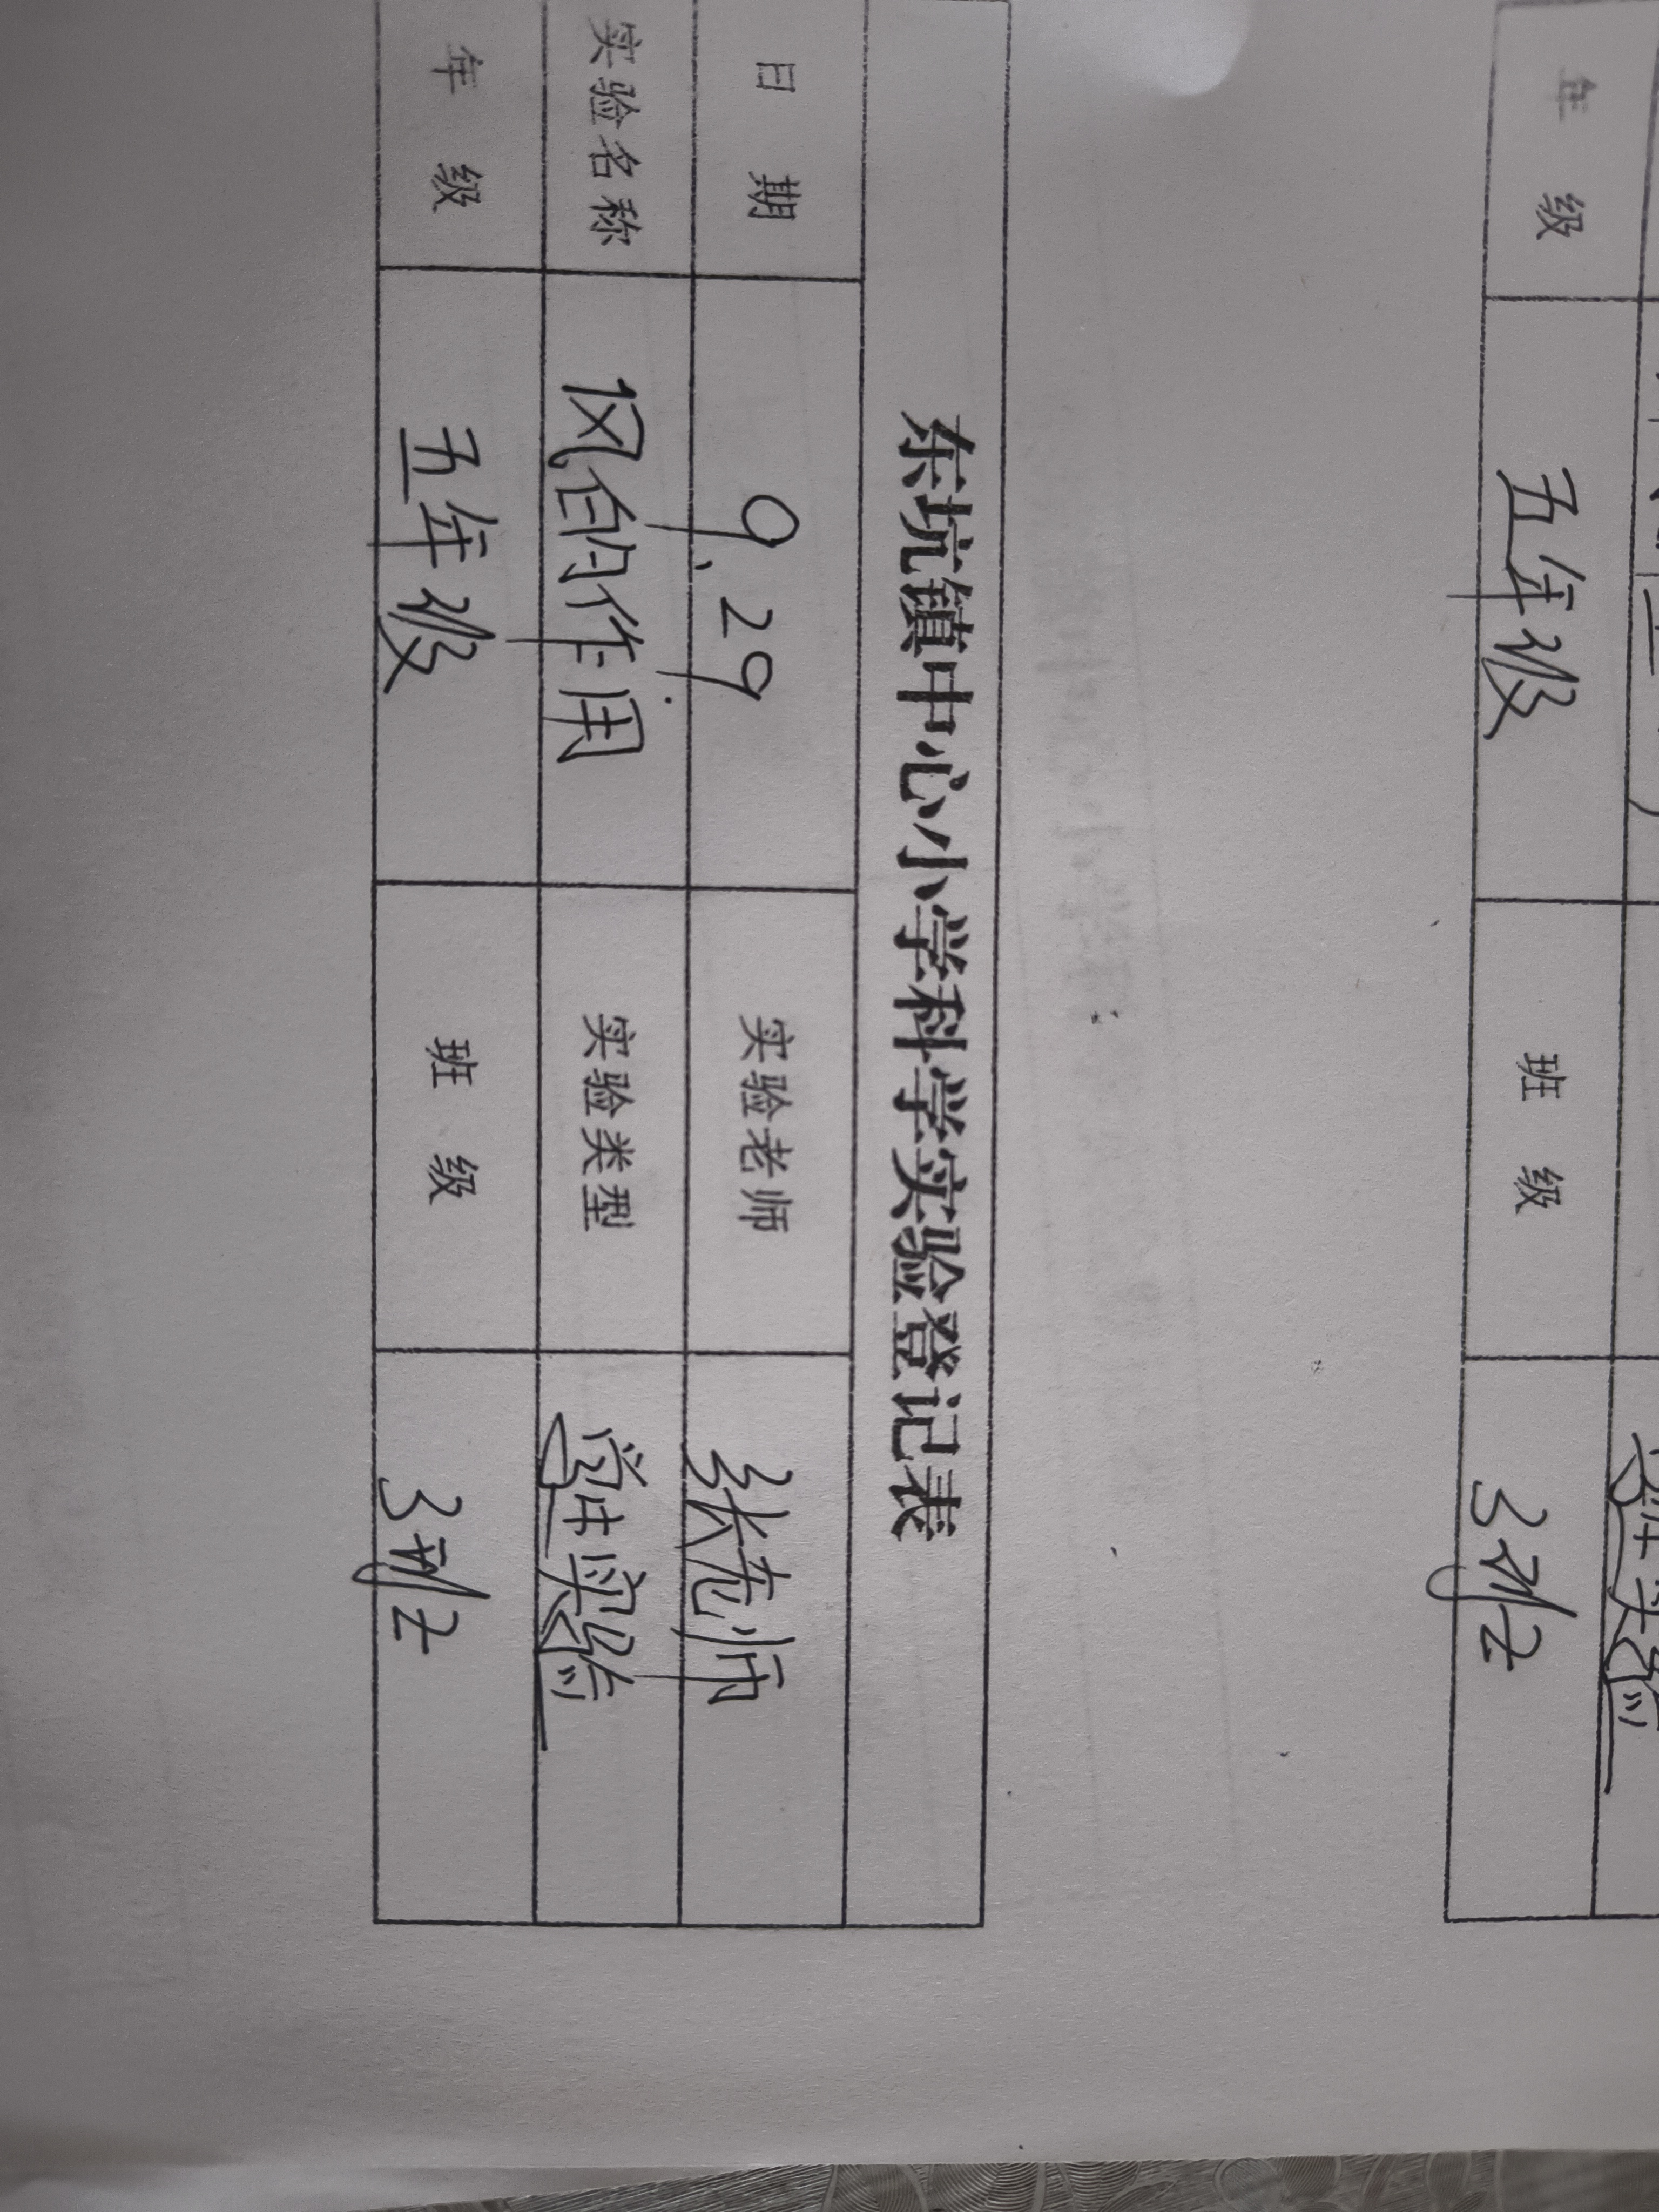 年 级 五年级 班 级 3班
东坑镇中心小学科学实验登记表
日 期 9.29 实验老师 张老师
实验名称 风的作用 实验类型 学生实验
年 级 五年级 班 级 3班